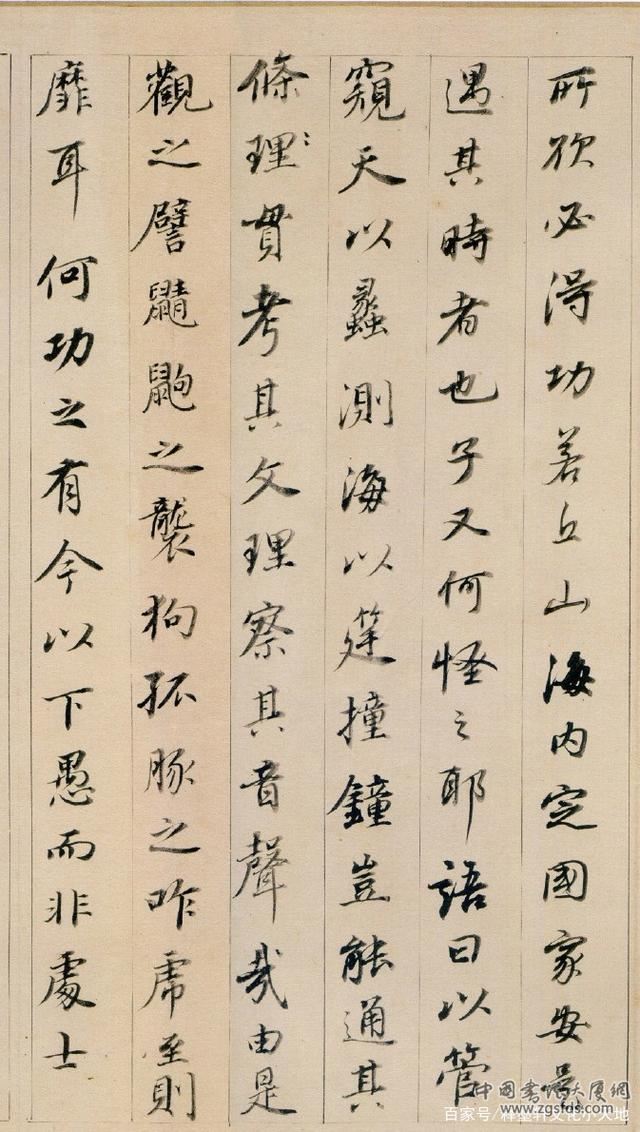 所欲必得功若丘山海内定國家安是
遇其時者也子又何怪之耶語曰以管
窺天以蠡測海以筳撞鐘豈能通其
條理貫考其文理察其音聲哉由是
觀之譬鼱鼩之襲狗孤豚之咋虎至則
靡耳何功之有今以下愚而非處士
www.zgsfds.com
百家号/